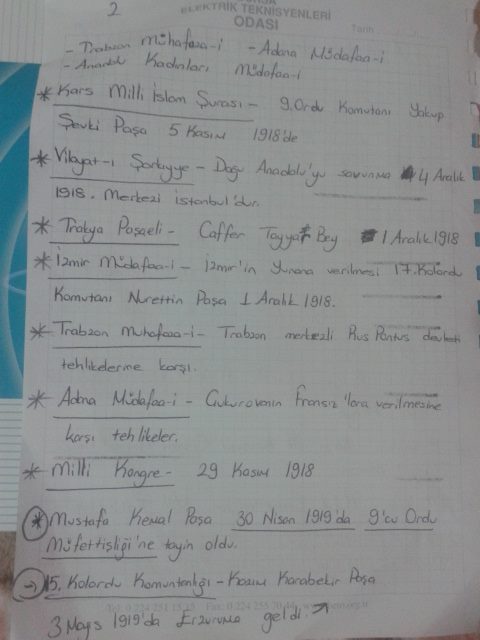 2
ELEKTRİK TEKNİSYENLERİ
ODASI
Tarih
- Trabzon Mühafaza-i - Adana Müdafaa-i
- Anadolu Kadınları Müdafaa-i
* Kars Milli İslam Şurası - 9. Ordu Komutanı Yakup
Şevki Paşa 5 Kasım 1918'de
* Vilayat-ı Şarkiyye - Doğu Anadolu'yu savunma 4 Aralık
1918. Merkezi İstanbul'dur.
* Trakya Paşaeli - Caffer Tayyar Bey 1 Aralık 1918
* İzmir Müdafaa-i - İzmir'in Yunana verilmesi 17. Kolordu
Komutanı Nurettin Paşa 1 Aralık 1918.
* Trabzon Muhafaza-i - Trabzon merkezli Rus Pontus devleti
tehlikelerine karşı.
* Adana Müdafaa-i - Çukurovanın Fransız'lara verilmesine
karşı tehlikeler.
* Milli Kongre - 29 Kasım 1918
* Mustafa Kemal Paşa 30 Nisan 1919'da 9'cu Ordu
Müfettişliği'ne tayin oldu.
→ 15. Kolordu Komutanlığı - Kazım Karabekir Paşa
3 Mayıs 1919'da Erzuruma geldi.